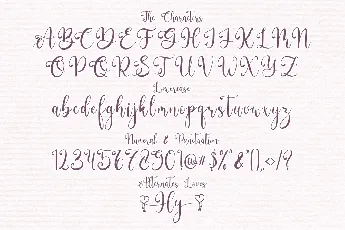 The Characters
ABCDEFGHIJKLMN
OPQRSTUVWXYZ
Lowercase
abcdefghijklmnopqrstuvwxyz
Numeral & Punctuation
1234567890!@#$%^&*(),.<>/?
Alternates Loves